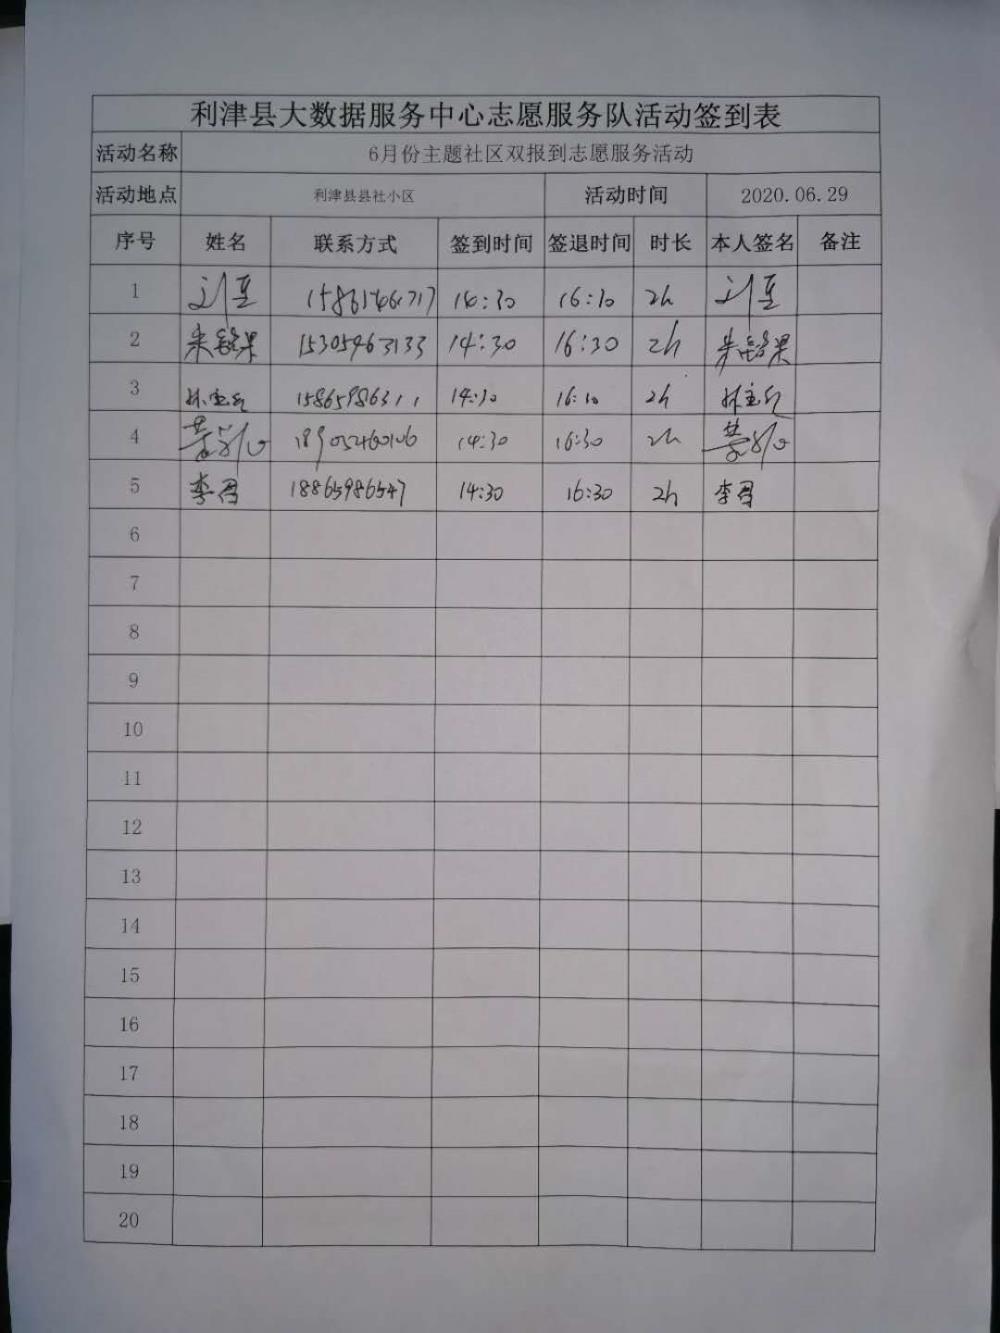 利津县大数据服务中心志愿服务队活动签到表
活动名称 6月份主题社区双报到志愿服务活动
活动地点 利津县县社小区 活动时间 2020.06.29
序号 姓名 联系方式 签到时间 签退时间 时长 本人签名 备注
1 14:30 16:30 2h
2 15305463133 14:30 16:30 2h
3 14:30 16:30 2h
4 18905460106 14:30 16:30 2h
5 李君 18865986547 14:30 16:30 2h 李君
6
7
8
9
10
11
12
13
14
15
16
17
18
19
20